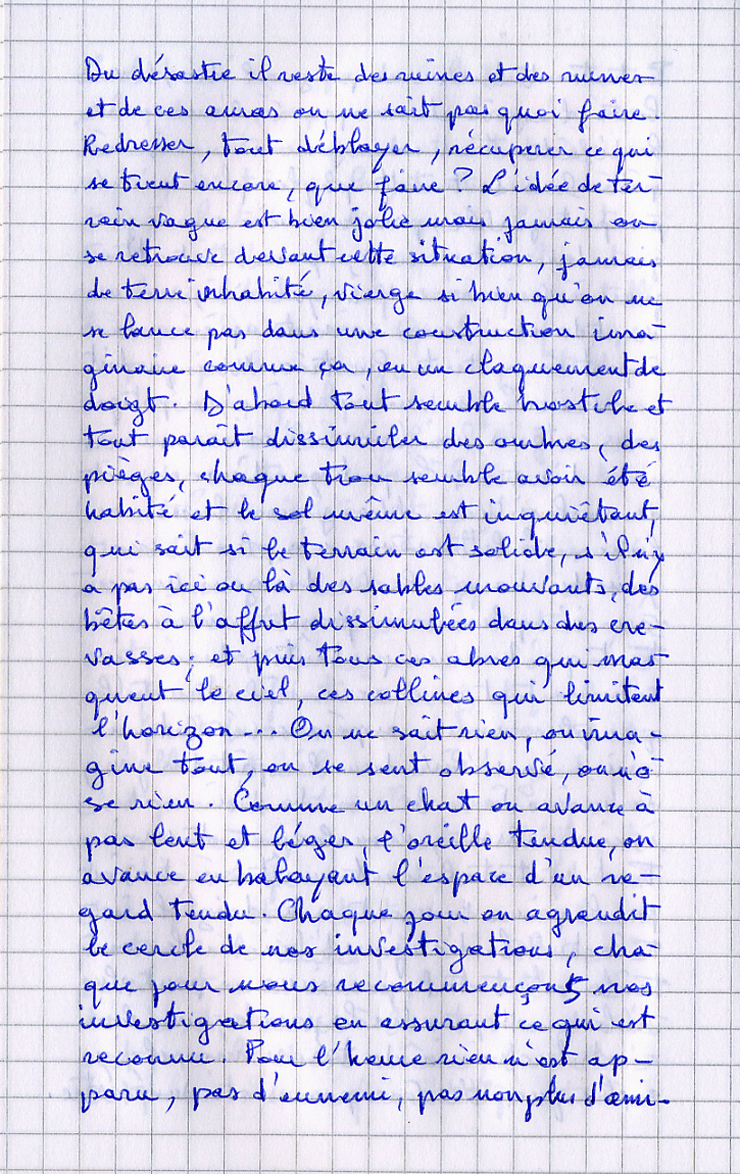 Du désastre il reste des ruines et des ruines
et de ces amas on ne sait pas quoi faire.
Redresser, tout déblayer, récupérer ce qui
se tient encore, que faire ? L'idée de ter-
rain vague est bien jolie mais jamais on
se retrouve devant cette situation, jamais
de terre inhabité, vierge si bien qu'on ne
se lance pas dans une construction ima-
ginaire comme ça, en un claquement de
doigt. D'abord tout semble hostile et
tout paraît dissimuler des ombres, des
pièges, chaque trou semble avoir été
habité et le sol même est inquiétant,
qui sait si le terrain est solide, s'il n'y
a pas ici ou là des sables mouvants, des
bêtes à l'affut dissimulées dans des cre-
vasses ; et puis tous ces abres qui mas-
quent le ciel, ces collines qui limitent
l'horizon... On ne sait rien, on ima-
gine tout, on se sent observé, on n'o-
se rien. Comme un chat on avance à
pas lent et léger, l'oreille tendue, on
avance en balayant l'espace d'un re-
gard tendu. Chaque jour on agrandit
le cercle de nos investigations, cha-
que jour nous recommençons nos
investigations en assurant ce qui est
reconnu. Pour l'heure rien n'est ap-
paru, pas d'ennemi, pas non plus d'ami-